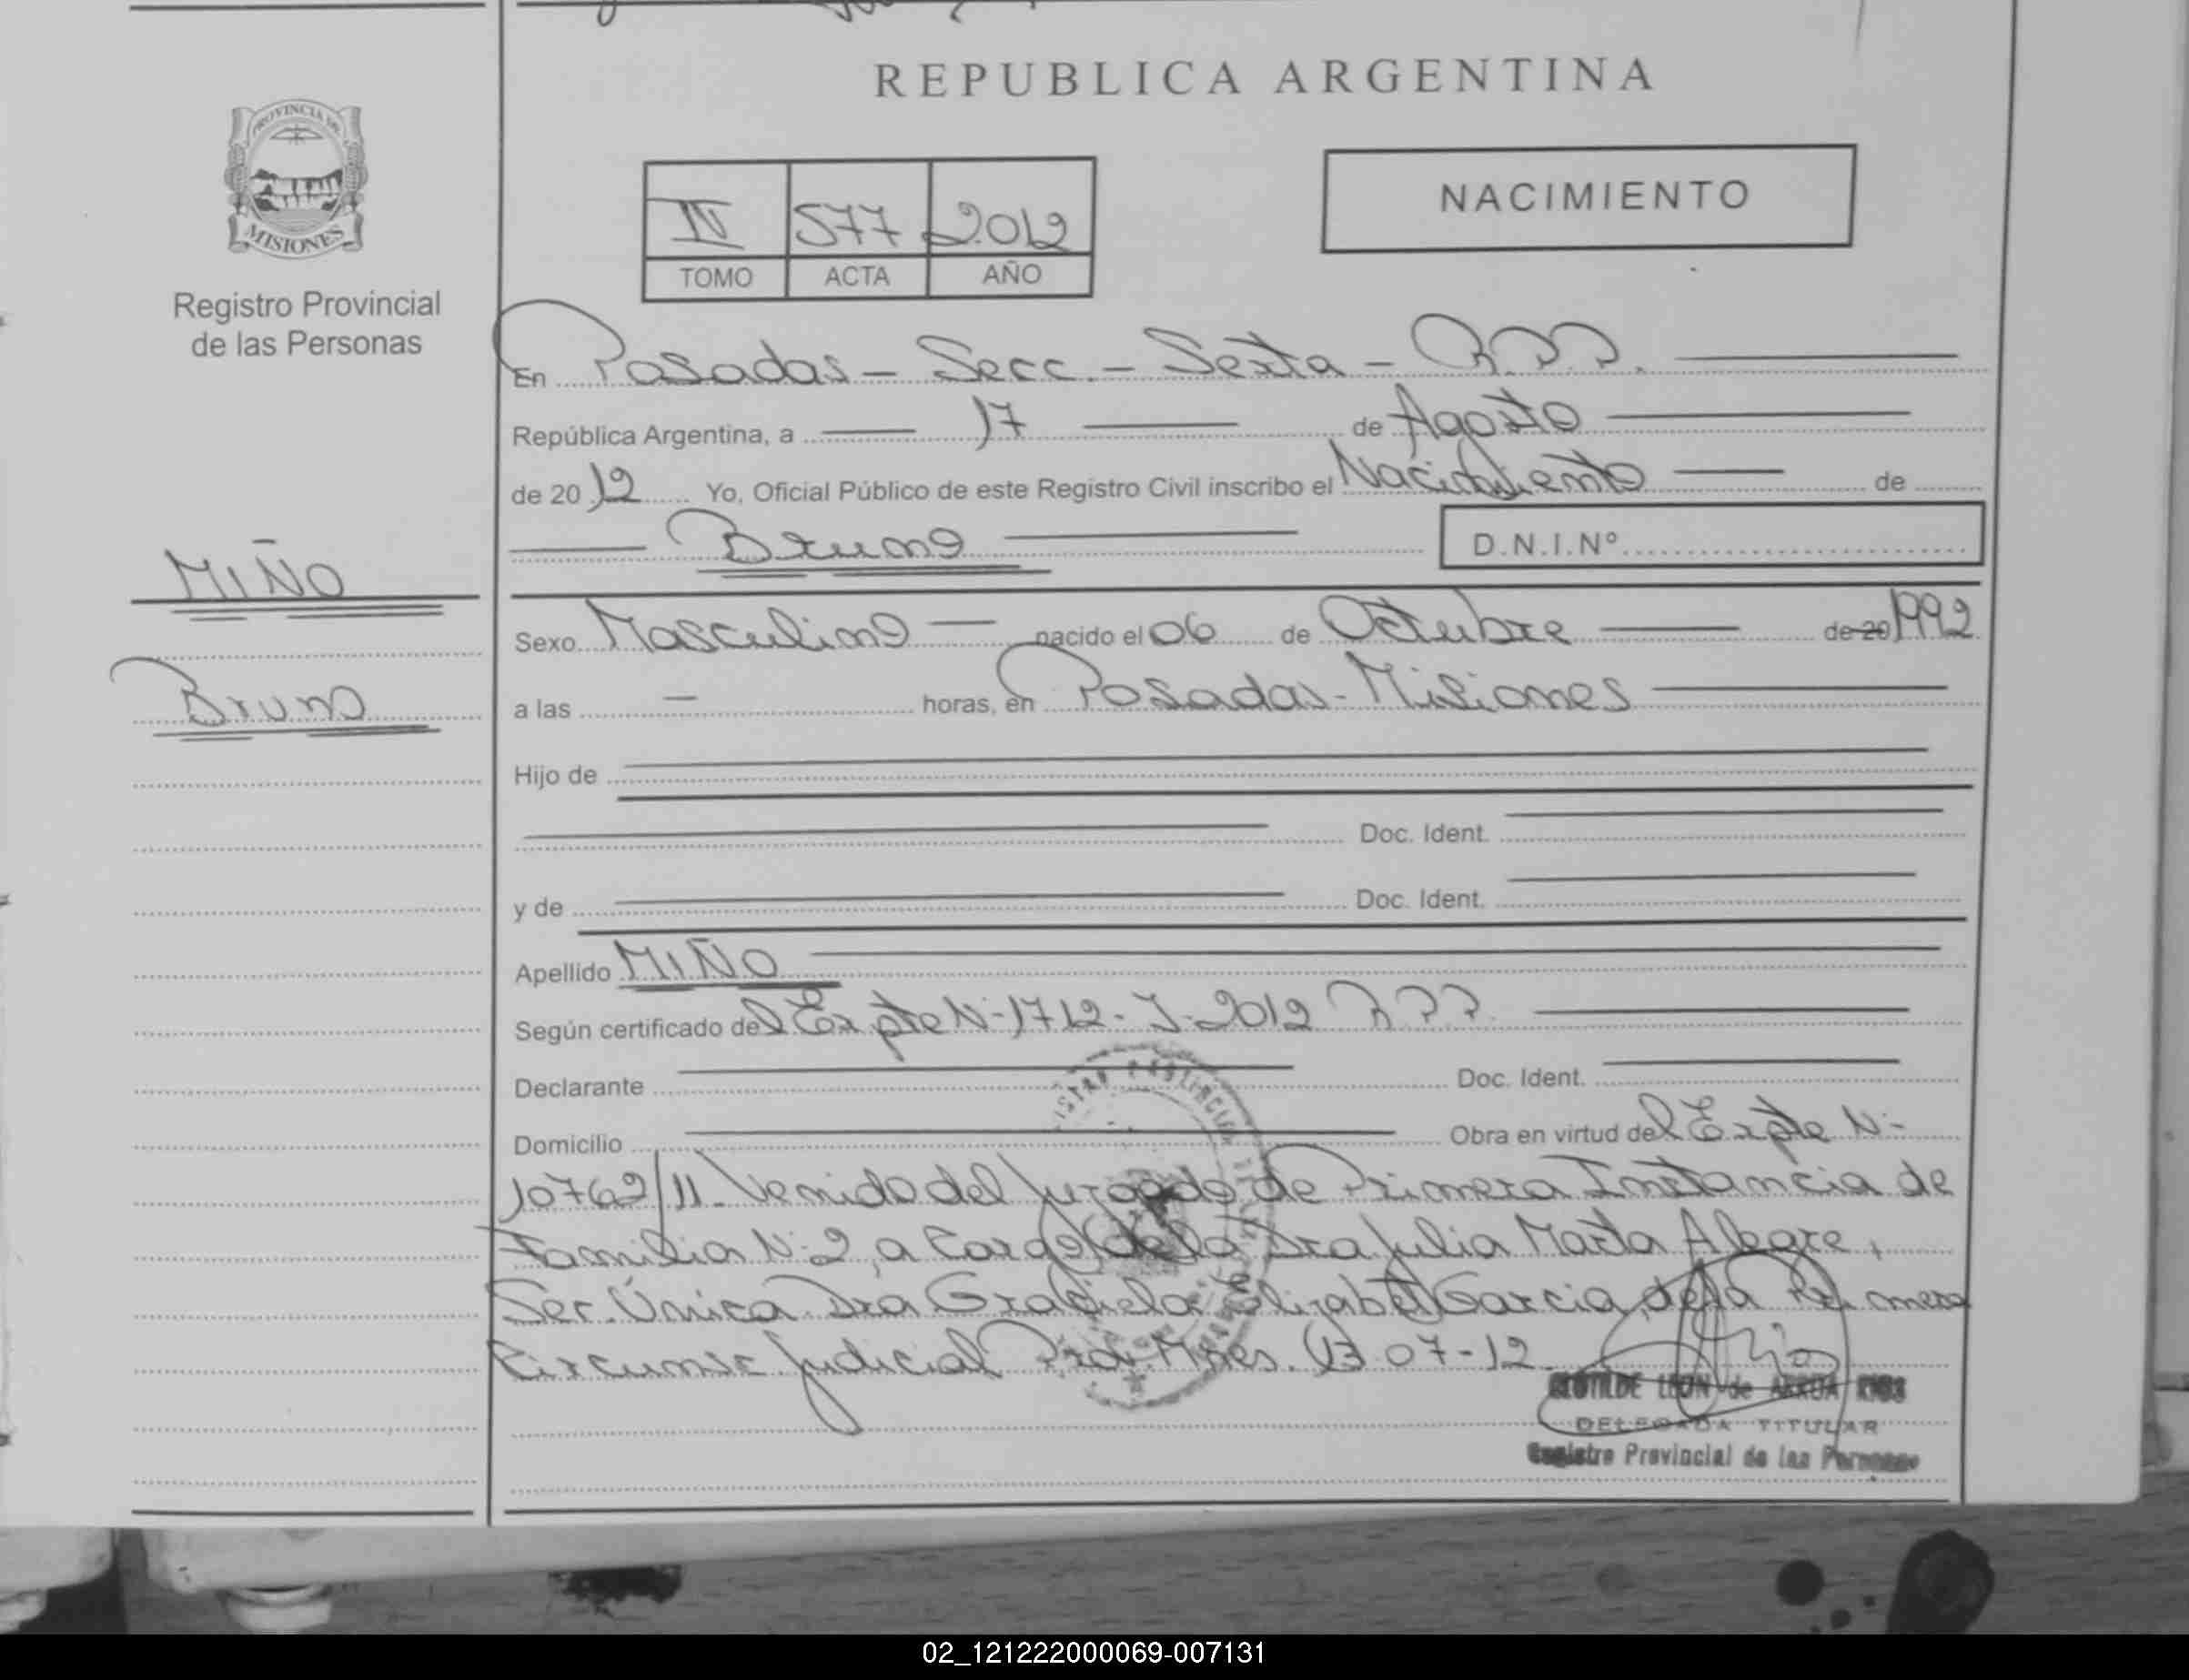 REPUBLICA ARGENTINA
PROVINCIA DE
MISIONES
Registro Provincial
de las Personas
NACIMIENTO
IV 577 2012
TOMO ACTA AÑO
En Posadas - Secc. - Sexta - R.P.P.
República Argentina, a 17 de Agosto
de 2012 Yo, Oficial Público de este Registro Civil inscribo el Nacimiento de
Bruno D.N.I.Nº
MIÑO
Bruno
Sexo Masculino nacido el 06 de Octubre de 20 1992
a las - horas, en Posadas - Misiones
Hijo de
Doc. Ident.
y de Doc. Ident.
Apellido MIÑO
Según certificado del Expte N- 1712- J- 2012 R.P.P.
Declarante Doc. Ident.
Domicilio Obra en virtud del Expte N-
10762/11. Venido del Juzgado de Primera Instancia de
Familia N-2, a Cargo de la Dra Julia Marta Alegre,
Sec. Única Dra Graciela Elizabet Garcia, de la Primera
Circunsc Judicial Pcia. Mnes. 13-07-12.
CLOTILDE LEON de ARRUA RIOS
DELEGADA TITULAR
Registro Provincial de las Personas
02_121222000069-007131